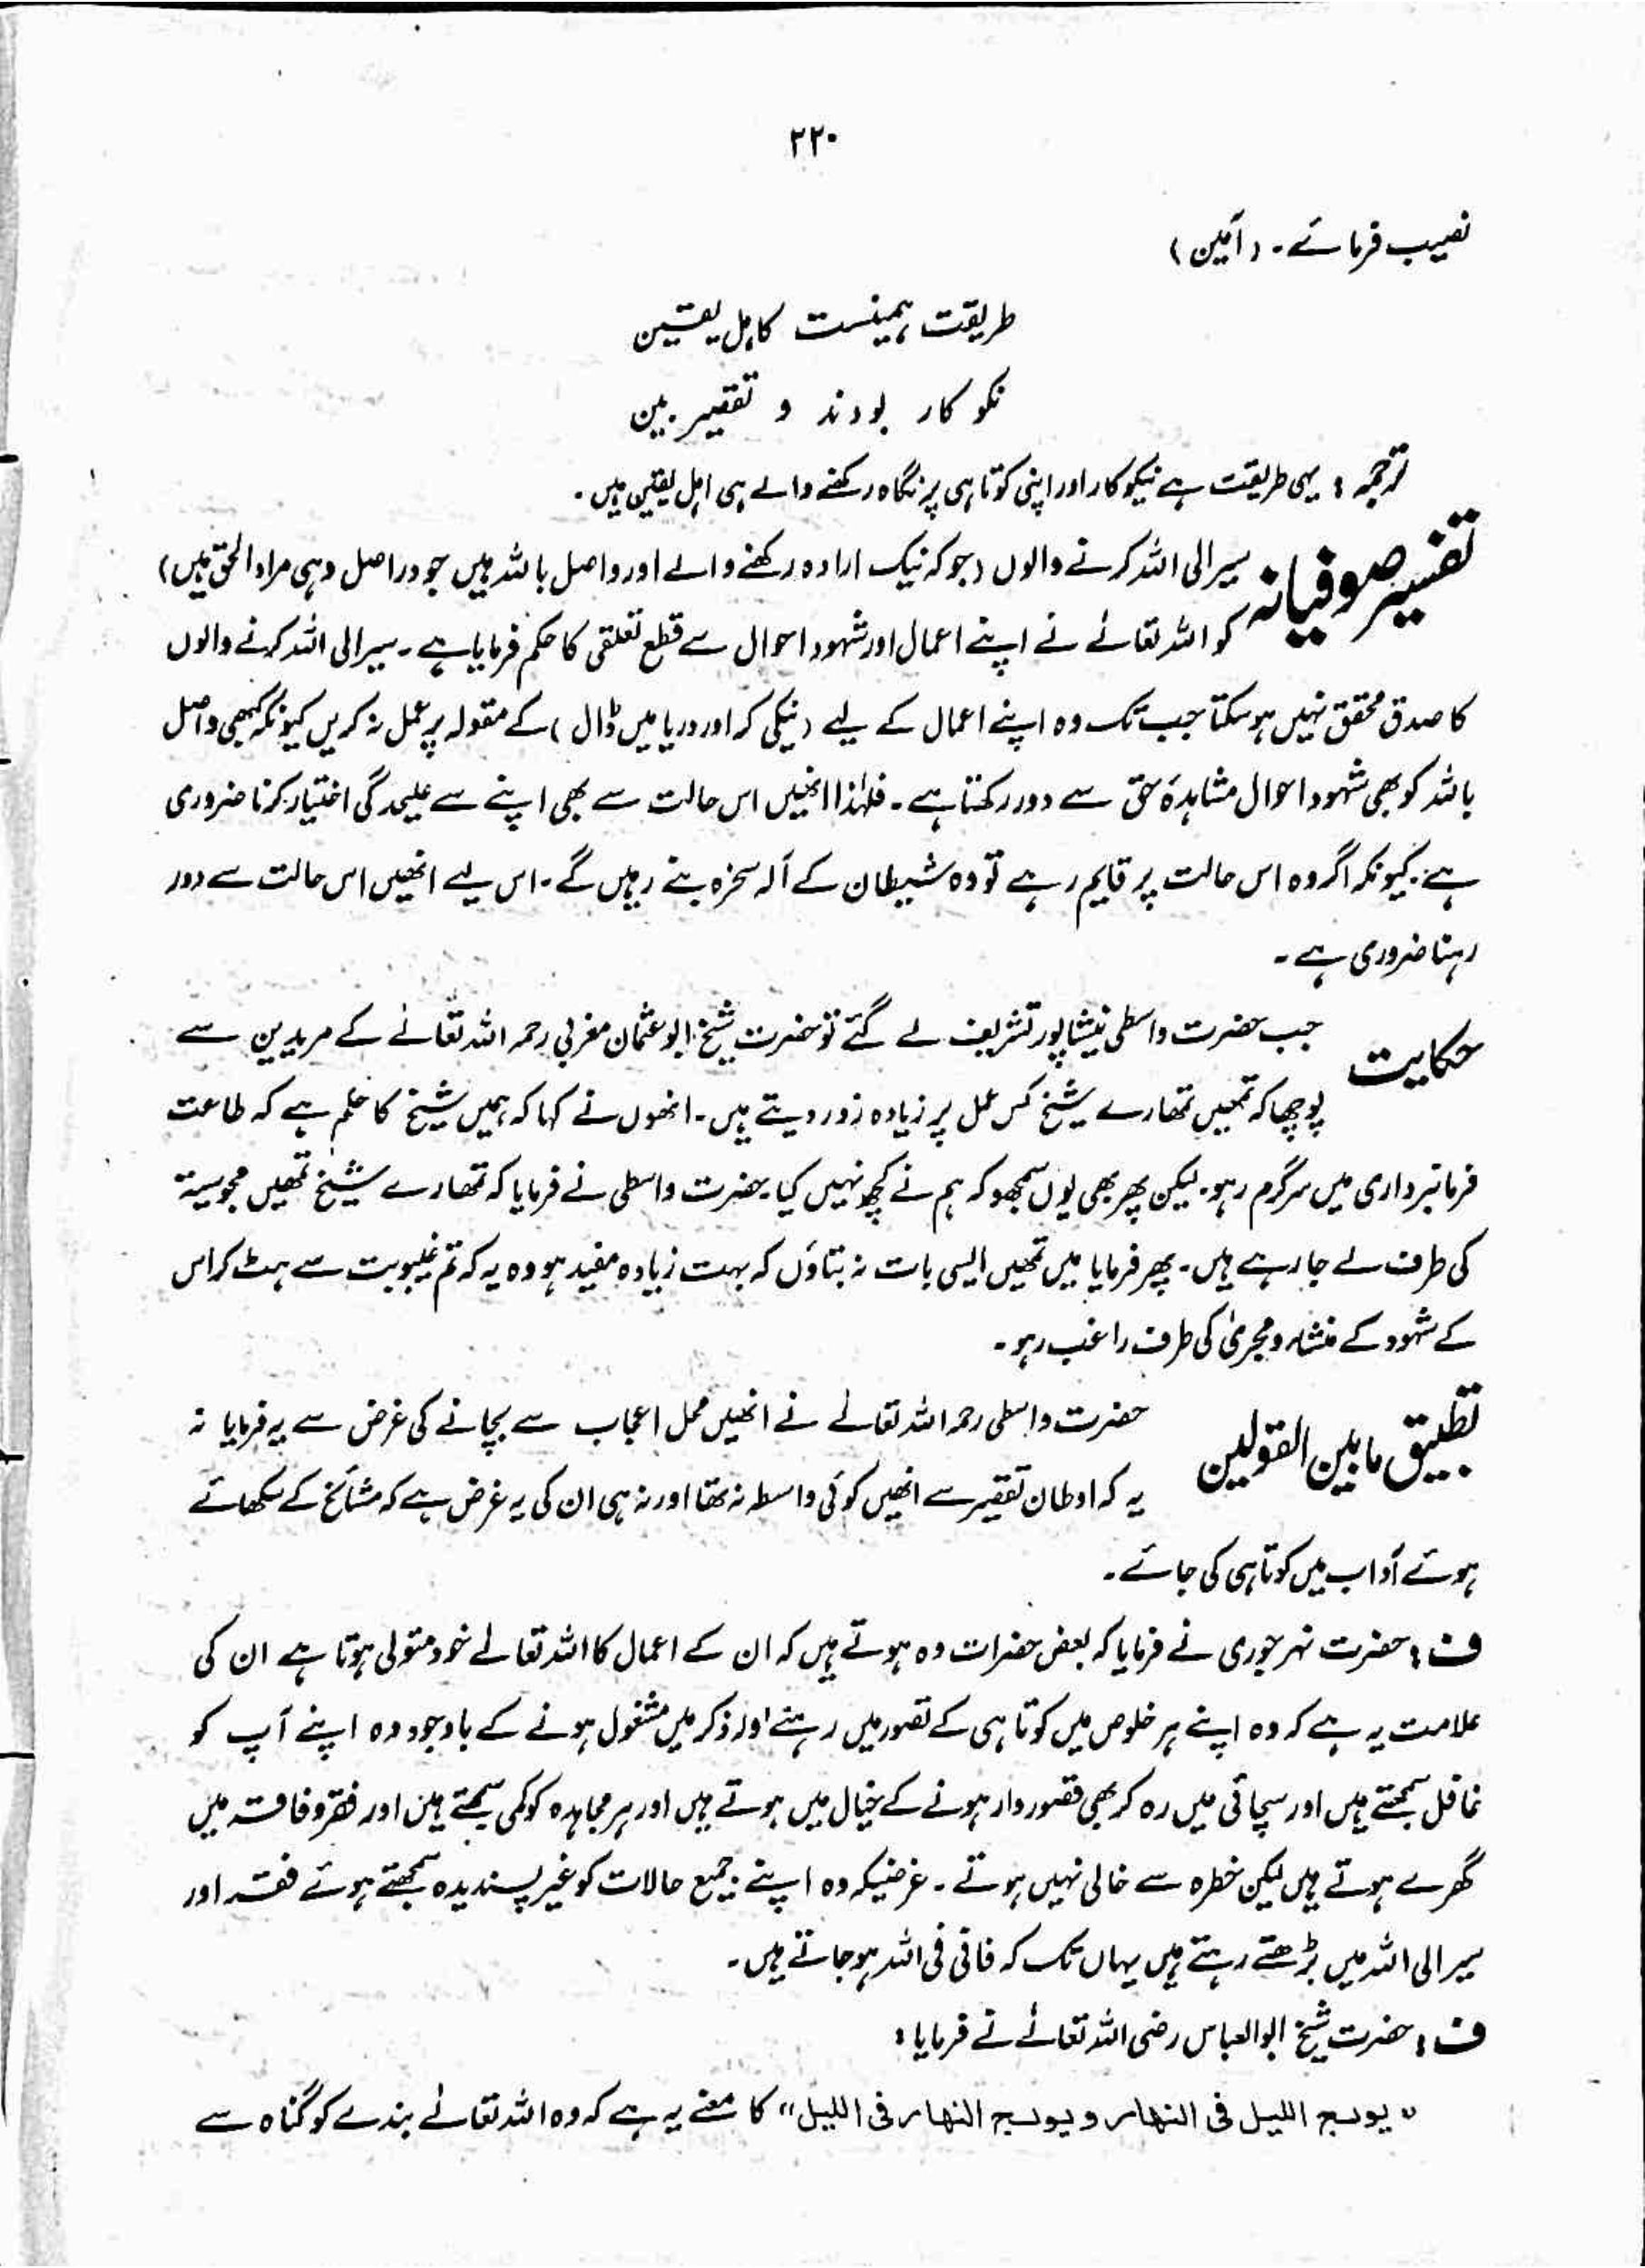 ۲۲۰
نصیب فرمائے۔ (آمین)
طریقت ہمینست کاہل یقین
نکو کار بودند و تقصیر بین
ترجمہ : یہی طریقت ہے نیکو کار اور اپنی کوتاہی پر نگاہ رکھنے والے ہی اہل یقین ہیں۔
تفسیر صوفیانہ سیر الی اللہ کرنے والوں (جو کہ نیک ارادہ رکھنے والے اور واصل باللہ ہیں جو دراصل وہی مراد الحق ہیں)
کو اللہ تعالیٰ نے اپنے اعمال اور شہود احوال سے قطع تعلقی کا حکم فرمایا ہے۔ سیر الی اللہ کرنے والوں
کا صدق محقق نہیں ہو سکتا جب تک وہ اپنے اعمال کے لیے (نیکی کر اور دریا میں ڈال) کے مقولہ پر عمل نہ کریں کیونکہ کبھی واصل
باللہ کو بھی شہود احوال مشاہدۂ حق سے دور رکھتا ہے۔ فلہٰذا انھیں اس حالت سے بھی اپنے سے علیحدگی اختیار کرنا ضروری
ہے۔ کیونکہ اگر وہ اس حالت پر قایم رہے تو وہ شیطان کے آلہ سخرہ بنے رہیں گے۔ اس لیے انھیں اس حالت سے دور
رہنا ضروری ہے۔
حکایت جب حضرت واسطی نیشاپور تشریف لے گئے تو حضرت شیخ ابو عثمان مغربی رحمہ اللہ تعالیٰ کے مریدین سے
پوچھا کہ تمھیں تمھارے شیخ کس عمل پر زیادہ زور دیتے ہیں۔ انھوں نے کہا کہ ہمیں شیخ کا حکم ہے کہ طاعت
فرمانبرداری میں سرگرم رہو۔ لیکن پھر بھی یوں سمجھو کہ ہم نے کچھ نہیں کیا۔ حضرت واسطی نے فرمایا کہ تمھارے شیخ تمھیں مجوسیۃ
کی طرف لے جا رہے ہیں۔ پھر فرمایا میں تمھیں ایسی بات نہ بتاؤں کہ بہت زیادہ مفید ہو وہ یہ کہ تم غیبوبت سے ہٹ کر اس
کے شہود کے منشاء و مجریٰ کی طرف راغب رہو۔
تطبیق مابین القولین حضرت واسطی رحمہ اللہ تعالےٰ نے انھیں محل اعجاب سے بچانے کی غرض سے یہ فرمایا نہ
یہ کہ اوطان تقصیر سے انھیں کوئی واسطہ نہ تھا اور نہ ہی ان کی یہ غرض ہے کہ مشائخ کے سکھائے
ہوئے آداب میں کوتاہی کی جائے۔
ف : حضرت نہر جوری نے فرمایا کہ بعض حضرات وہ ہوتے ہیں کہ ان کے اعمال کا اللہ تعالےٰ خود متولی ہوتا ہے ان کی
علامت یہ ہے کہ وہ اپنے ہر خلوص میں کوتاہی کے تصور میں رہنے اور ذکر میں مشغول ہونے کے باوجود وہ اپنے آپ کو
غافل سمجھتے ہیں اور سچائی میں رہ کر بھی قصوردار ہونے کے خیال میں ہوتے ہیں اور ہر مجاہدہ کو کمی سمجھتے ہیں اور فقر و فاقہ میں
گھرے ہوتے ہیں لیکن خطرہ سے خالی نہیں ہوتے۔ غرضیکہ وہ اپنے جمیع حالات کو غیر پسندیدہ سمجھتے ہوئے فقر اور
سیر الی اللہ میں بڑھتے رہتے ہیں یہاں تک کہ فانی فی اللہ ہو جاتے ہیں۔
ف : حضرت شیخ ابو العباس رضی اللہ تعالےٰ نے فرمایا :
"یولج الیل فی النھار و یولج النھار فی اللیل" کا معنے یہ ہے کہ وہ اللہ تعالےٰ بندے کو گناہ سے